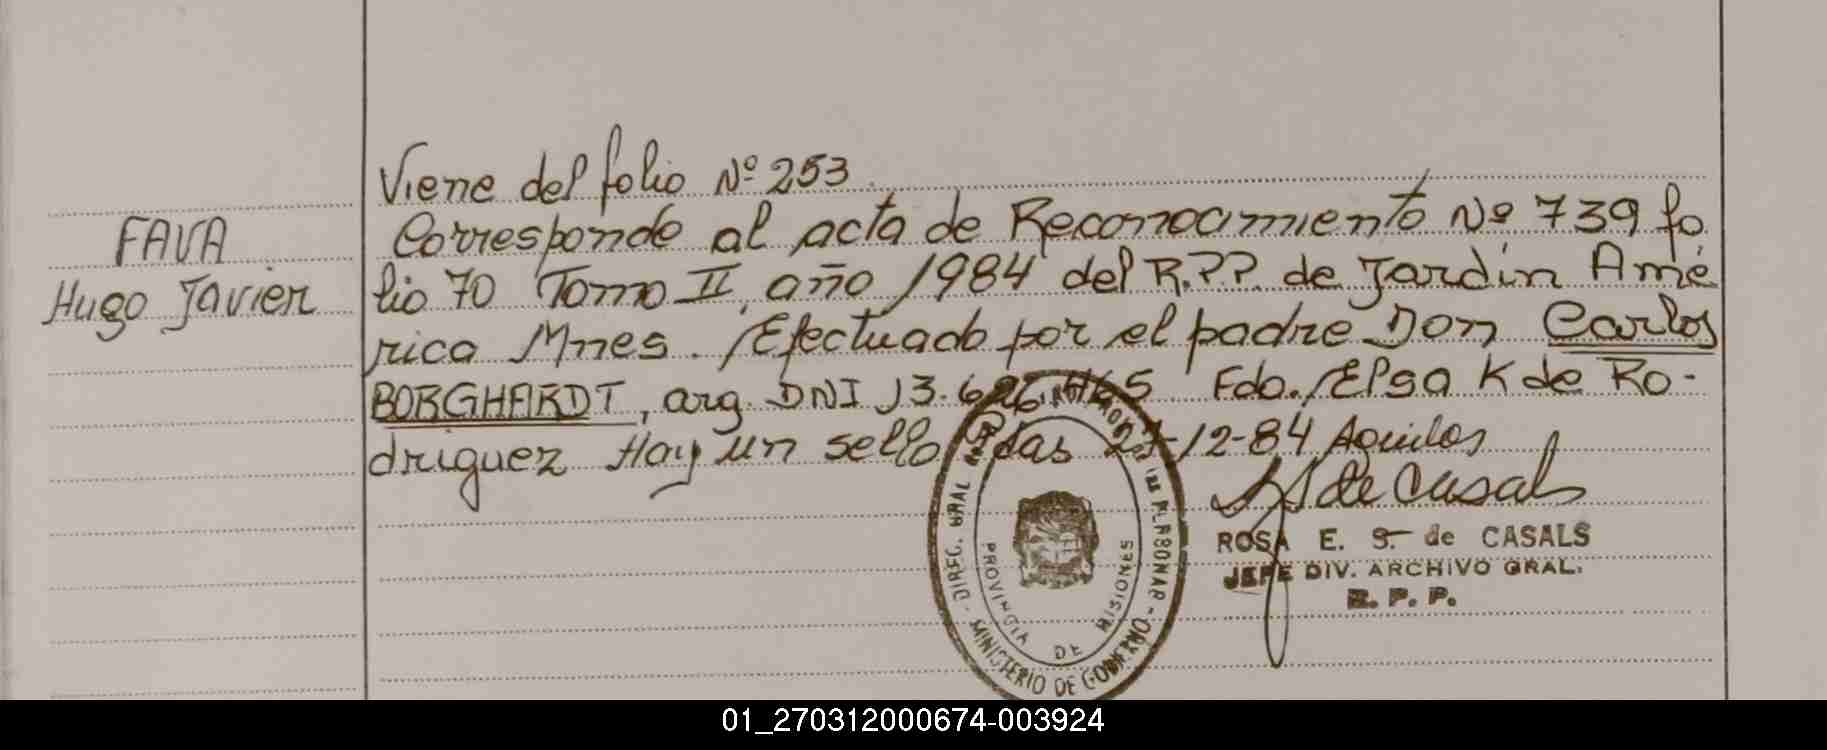 Viene del folio Nº 253
FAVA
Hugo Javier
Corresponde al acta de Reconocimiento Nº 739 fo
lio 70 Tomo II, año 1984 del R.P.P. de Jardín Amé
rica Mnes. Efectuado por el padre Don Carlos
BORGHARDT, arg. DNI 13.6 465 Fdo. Elsa K de Ro-
driguez Hay un sello Pdas 2 -12-84 Aguilas
de Casals
ROSA E. S. de CASALS
JEFE DIV. ARCHIVO GRAL.
R. P. P.
DIREC. GRAL
MINISTERIO DE GOBIERNO
PROVINCIA DE MISIONES
01_270312000674-003924